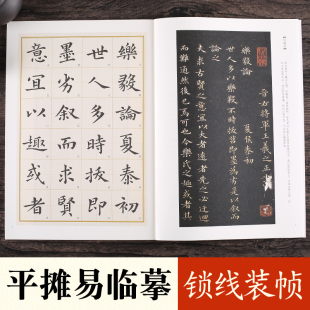 樂毅論夏泰初
世人多時拔即
墨劣叙而求賢
意宜以趣或者
晉右將軍王羲之正書
樂毅論
夏侯泰初
世人多以樂毅不時拔莒即墨為劣是以叙而
論之
夫求古賢之意宜以大者遠者先之必迂迴
而難通然後已焉可也今樂氏之趣或者其
平摊易临摹
锁线装帧